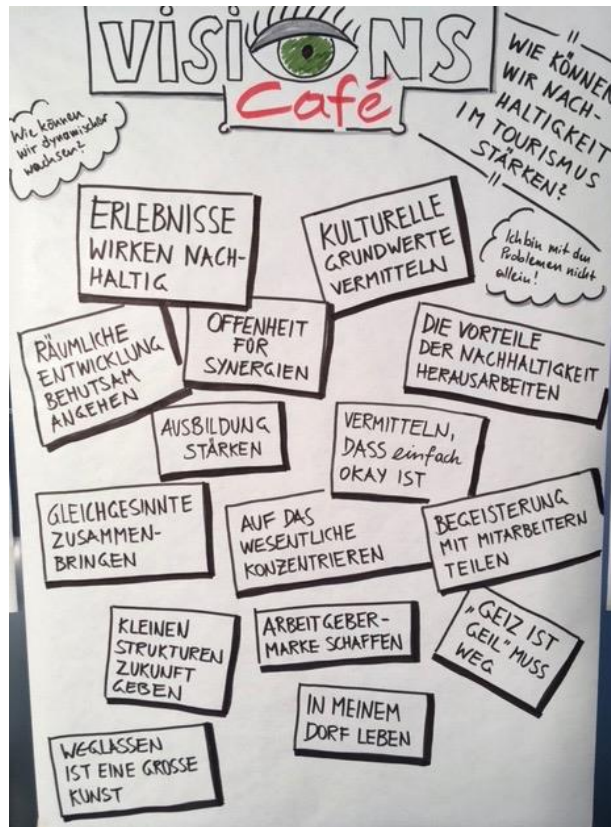 VISIONS
Café
WIE KÖNNEN
WIR NACH-
HALTIGKEIT
IM TOURISMUS
STÄRKEN?
Wie können
wir dynamischer
wachsen?
Ich bin mit den
Problemen nicht
allein!
ERLEBNISSE
WIRKEN NACH-
HALTIG
KULTURELLE
GRUNDWERTE
VERMITTELN
RÄUMLICHE
ENTWICKLUNG
BEHUTSAM
ANGEHEN
OFFENHEIT
FÜR
SYNERGIEN
DIE VORTEILE
DER NACHHALTIGKEIT
HERAUSARBEITEN
AUSBILDUNG
STÄRKEN
VERMITTELN,
DASS einfach
OKAY IST
GLEICHGESINNTE
ZUSAMMEN-
BRINGEN
AUF DAS
WESENTLICHE
KONZENTRIEREN
BEGEISTERUNG
MIT MITARBEITERN
TEILEN
KLEINEN
STRUKTUREN
ZUKUNFT
GEBEN
ARBEITGEBER-
MARKE SCHAFFEN
„GEIZ IST
GEIL" MUSS
WEG
IN MEINEM
DORF LEBEN
WEGLASSEN
IST EINE GROSSE
KUNST